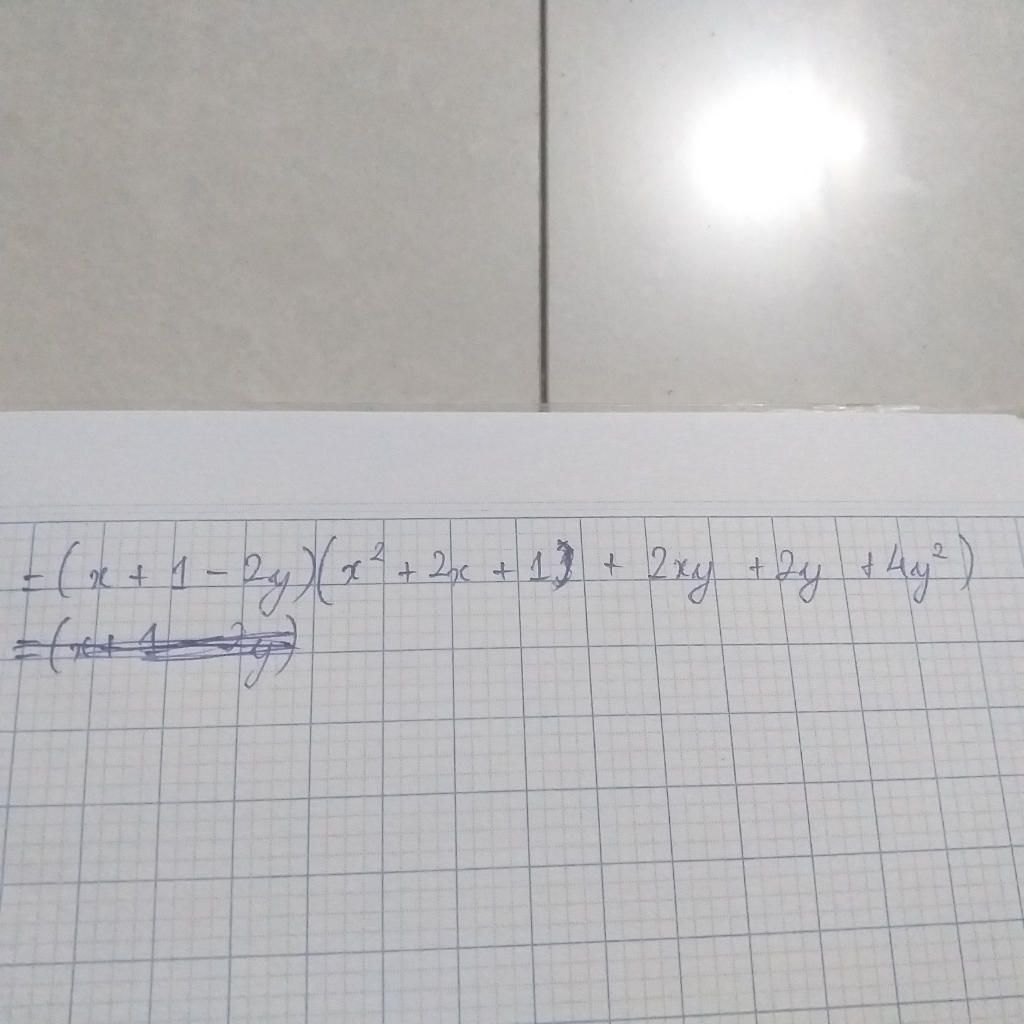 = (x + 1 - 2y)(x² + 2x + 1 + 2xy + 2y + 4y²)
= (x + 1 - 2y)